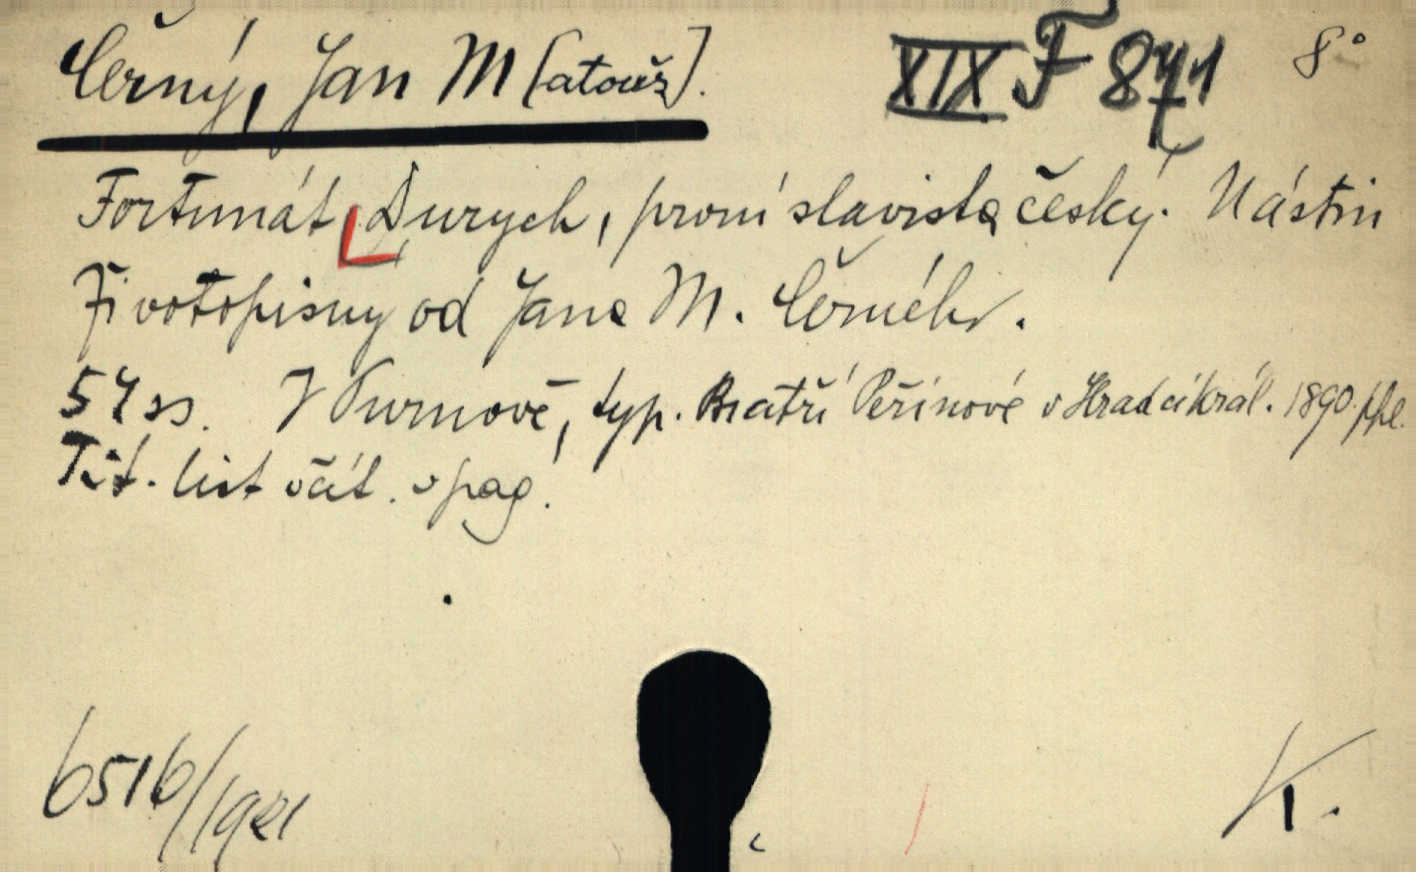 Černý, Jan M[atouš]. XIX F 871 8°
Fortunát Durych, první slavista český. Nástin
životopisný od Jana M. Černého.
54 ss. V Turnově, typ. Bratří Peřinové v Hradci Král. 1890. ppl.
Tit. list včít. v pag.
6516/1921 K.